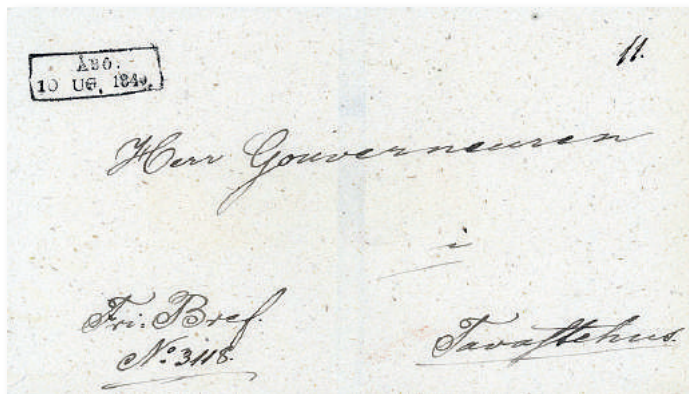 ÅBO.
10 UG, 184
11.
Herr Gouverneuren
i
Fri: Bref.
No: 3118.
Tavastehus.